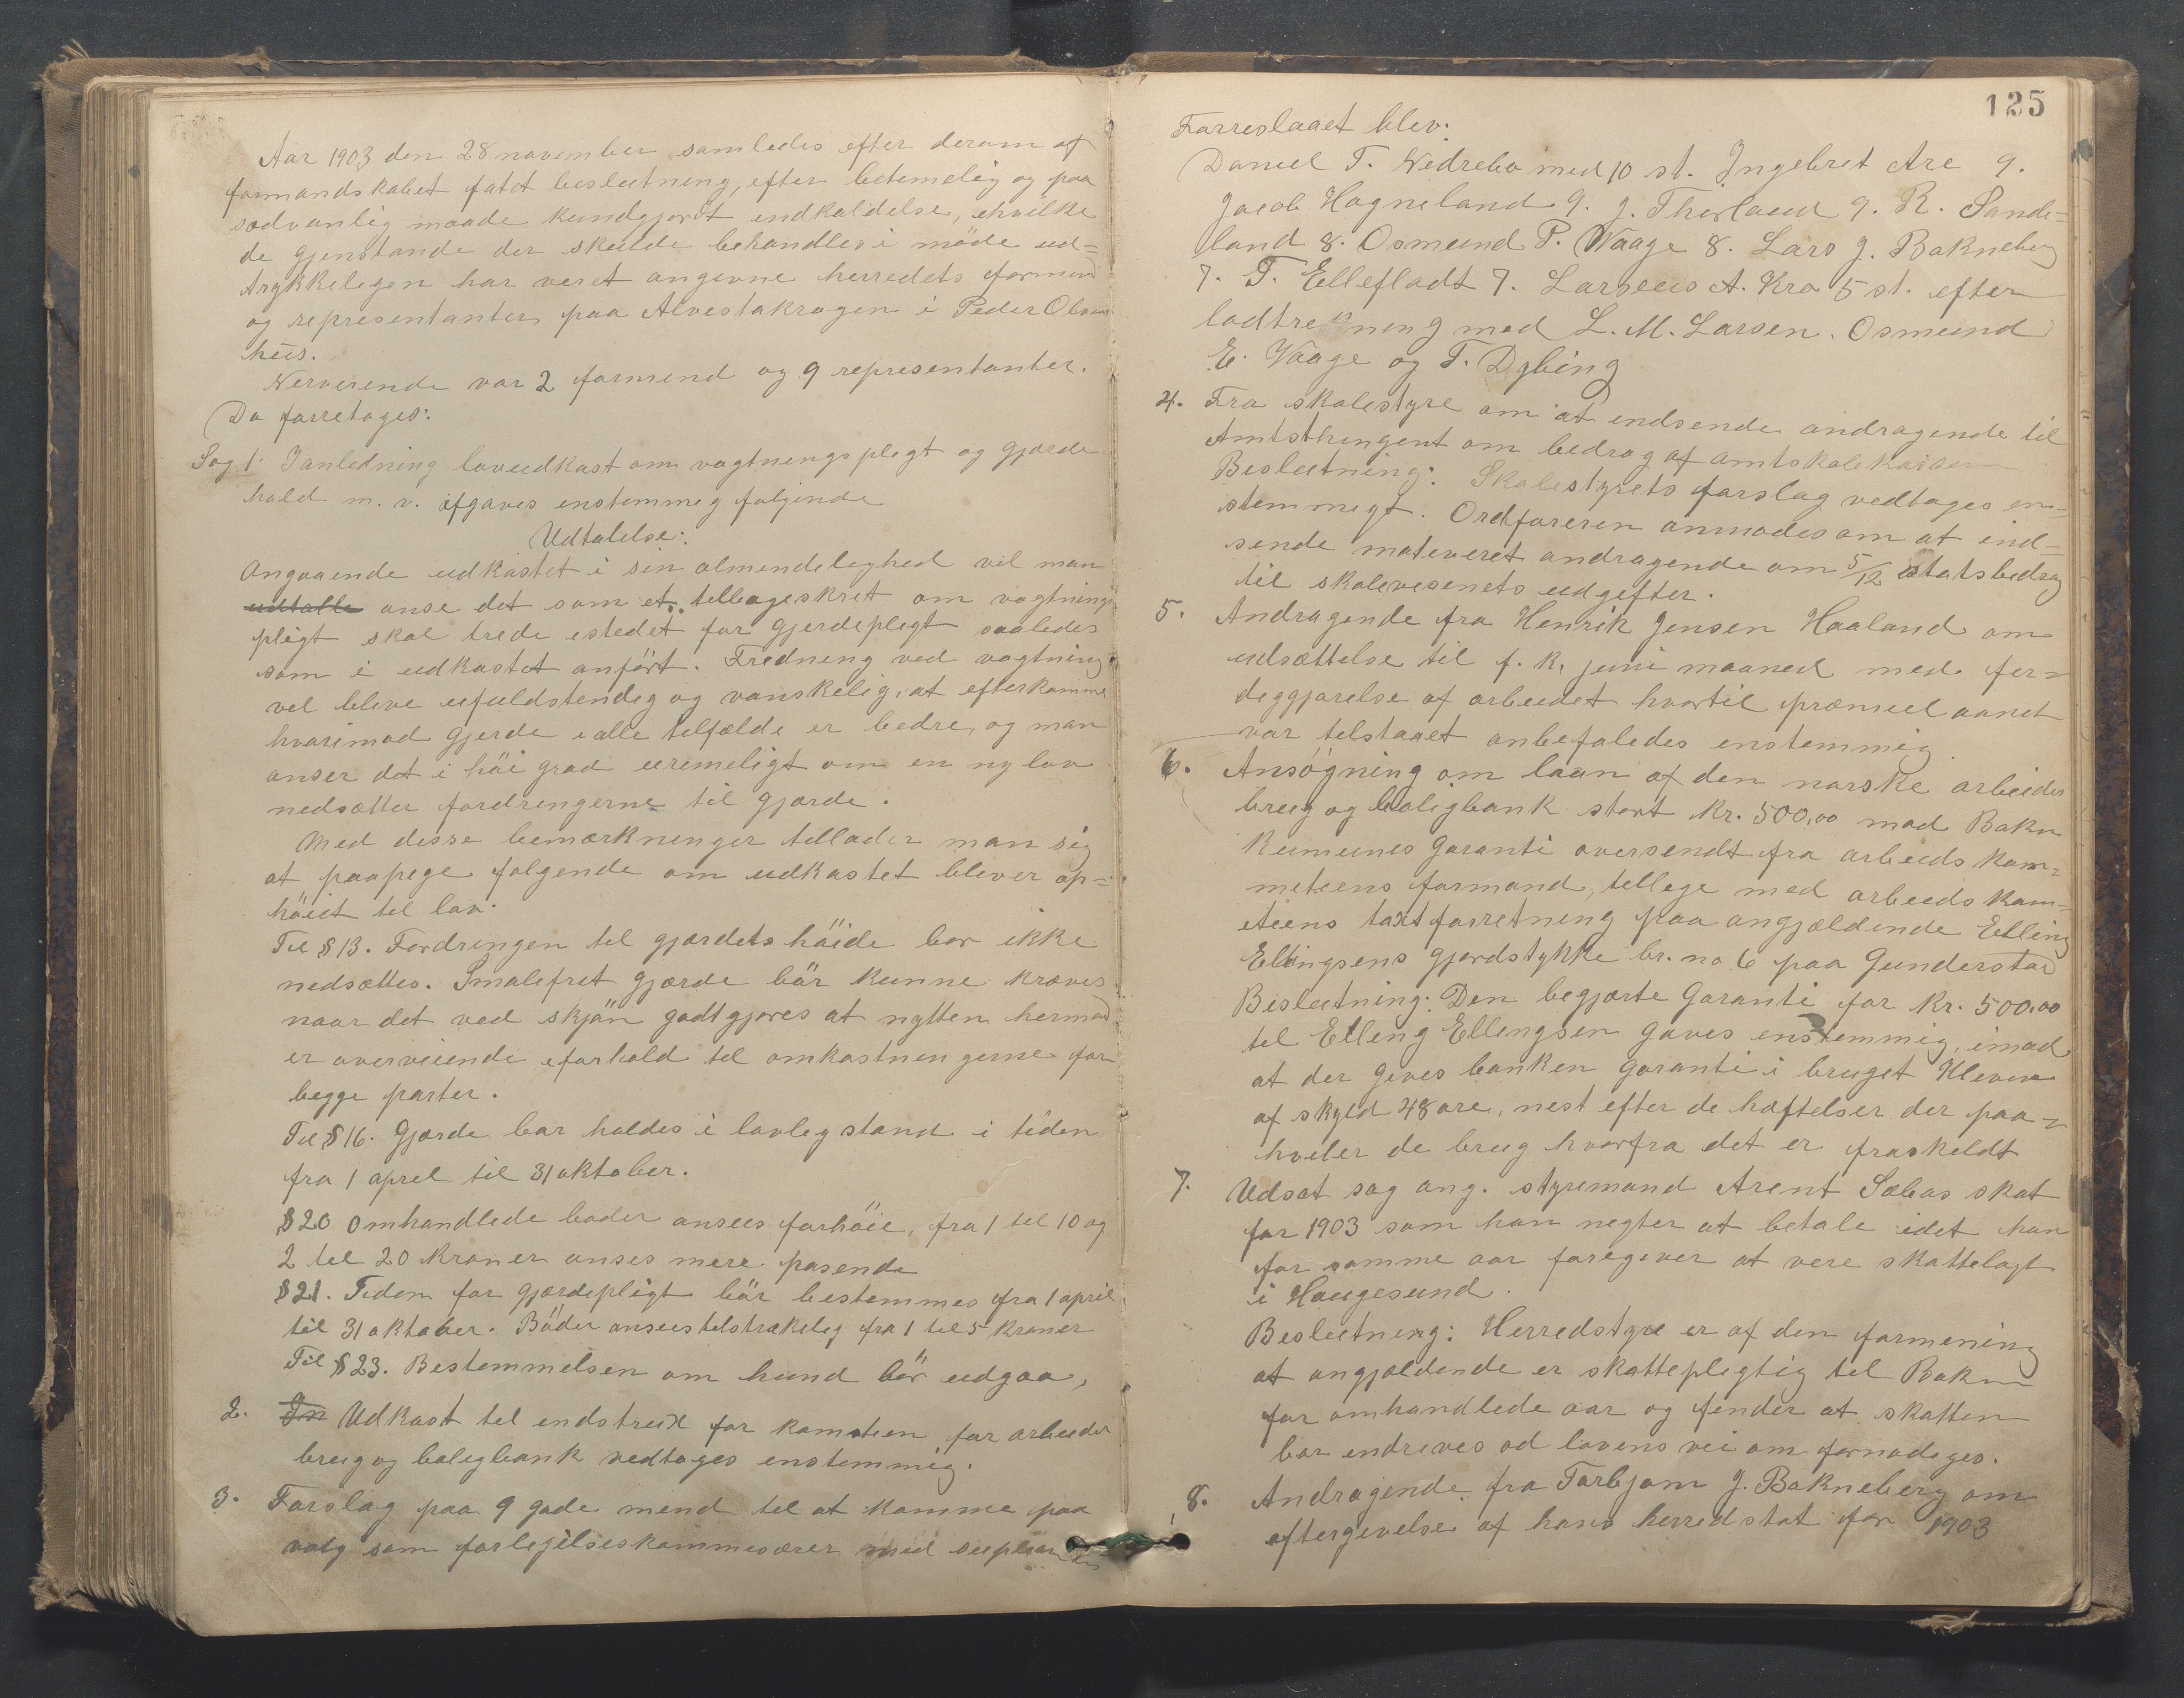 Aar 1903 den 28 november samledes efter derom af
formandskabet fatet beslutning, efter betemelig og paa
sædvanlig maade kundgjordt endkaldelse, ehvilke
de gjenstande der skulde behandles i möde ud=
trykkelegen har veret angevne herredets formend
og representanter paa Alvestakrogen i Peder Olsens
hus.
Nerverende var 2 formend og 9 representanter.
Da forretages:
Sag 1. Ianledning lovudkast om vogtnengs plegt og gjærde
hold m. v. afgaves enstemmeg følgende
Udtalelse:
Angaaende udkastet i sin almendeleghed vil man
udtalle anse det som et tellbageskret om vogtnings
pligt skal trede estedet for gjerdeplegt saaledes
som i udkastet anført. Fredneng ved vogtning
vel bleve ufuldstendeg og vanskelig at efterkomme
hvorimod gjerde ealle telfælde er bedre, og man
anser det i höi grad uremeligt om en ny lov
nedsætter fordrengerne til gjærde.
Med desse bemærkninger tellader man seg
at paapege følgende om udkastet blever op=
höiet til lov.
Til § 13. Fordringen tel gjærdets höide bør ikke
nedsættes. Smalefret gjærde bär kunne kræves
naar det ved skjön godtgjøres at nytten hermed
er overveiende eforhold tel omkostnengerne for
begge parter.
Tel § 16. Gjærde bør holdes i lovleg stand i tiden
fra 1 aprel til 31 oktober.
§ 20 omhandlede bøder ansees forhöie, fra 1 tel 10 og
2 tel 20 kroner anses mere pasende
§ 21. Tiden for gjærdepligt bör bestemmes fra 1 april
til 31 oktober. Böder ansees telstrækeleg fra 1 tel 5 kroner
Til § 23. Bestemmelsen om hund bör udgaa,
2. In Udkast tel endstrux for komiteen for arbeider
breug og boligbank vedtages enstemmig.
3. Forslag paa 9 gode mend tel at komme paa
valg som forlegilseskommesærer med suplean
125
Forreslaaet blev:
Daniel T. Nedrebø med 10 st. Ingebret Are 9.
Jacob Hagneland 9. J. Thorland 9. R. Sande=
land 8. Osmund P. Waage 8. Lars J. Bokneberg
7. T. Ellefladt 7. Larseus A. Kro 5 st. efter
lodtrekning med L. M. Larsen. Osmund
E. Vaage og T. Dybing
4. Fra skolestyre om at endsende andragende til
Amtsthengent om bedrag af amtskolekassen
Beslutning: Skolestyrets forslag vedtages en=
stemmigt. Ordføreren anmodes om at ind=
sende moteveret andragende om 5/12 statsbedrag
til skolevesenets udgefter.
5. Andragende fra Henrik Jensen Haaland om
udsættelse til f. k. juni maaned med fer=
deggjørelse af arbeidet hvortil præmielaanet
var telstaaet anbefaledes enstemmig
6. Ansøgning om laan af den norske arbeider
breug og boligbank stort Kr. 500,00 mod Bokn
Kumunes garanti oversendt fra arbeids kom=
meteens formand, tellege med arbeeds kom=
eteens taxtforretneng paa angjældende Elling
Ellingsens gjordstykke br. no 6 paa Gunderstad
Beslutning: Den begjærte garanti for Kr. 500,00
tel Elleng Ellengsen gaves enstemmig, imod
at der geves banken garanti i bruget Kleven
af skyld 48 øre, nest efter de hæftelser der paa=
hveler de brug hvorfra det er fraskeldt
7. Udsat sag ang. styremand Arent Sæbøs skat
for 1903 som han negter at betale idet han
for samme aar foregever at vere skattelagt
i Haugesund.
Beslutneng: Herredstyre er af den formening
at angjældende er skatteplegtig tel Bokn
for omhandlede aar og fender at skatten
bør endreves ad lovens vei om fornødeges.
8. Andragende fra Torbjørn J. Bokneberg om
eftergevelse af hans herredskat for 1903